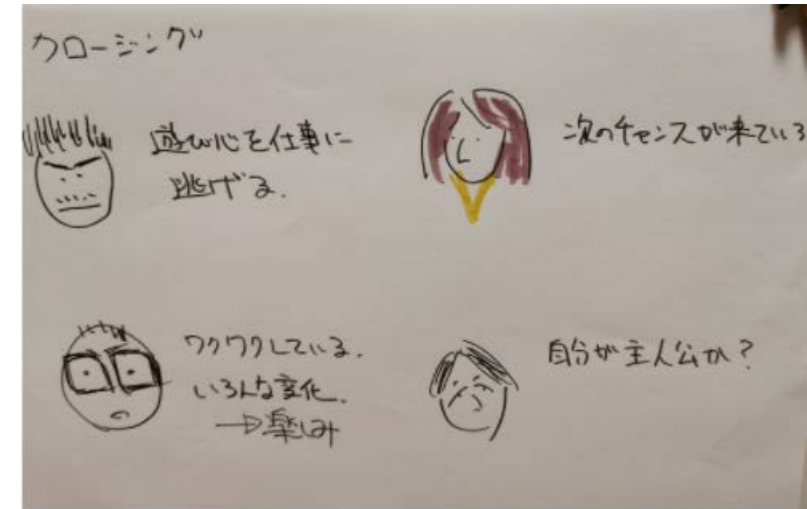 クロージング
遊び心を仕事に
逃げる.
次のチャンスが来ている
ワクワクしている.
いろんな変化.
→楽しみ
自分が主人公か?